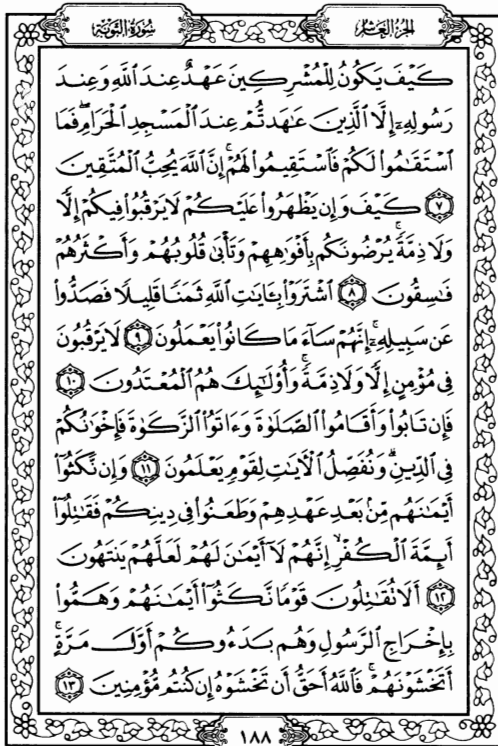 الجزء العاشر
سورة التوبة
كَيْفَ يَكُونُ لِلْمُشْرِكِينَ عَهْدٌ عِندَ اللَّهِ وَعِندَ
رَسُولِهِۦٓ إِلَّا الَّذِينَ عَٰهَدتُّمْ عِندَ الْمَسْجِدِ الْحَرَامِ ۖ فَمَا
اسْتَقَٰمُوا۟ لَكُمْ فَاسْتَقِيمُوا۟ لَهُمْ ۚ إِنَّ اللَّهَ يُحِبُّ الْمُتَّقِينَ
٧ كَيْفَ وَإِن يَظْهَرُوا۟ عَلَيْكُمْ لَا يَرْقُبُوا۟ فِيكُمْ إِلًّا
وَلَا ذِمَّةً ۚ يُرْضُونَكُم بِأَفْوَٰهِهِمْ وَتَأْبَىٰ قُلُوبُهُمْ وَأَكْثَرُهُمْ
فَٰسِقُونَ ٨ اشْتَرَوْا۟ بِـَٔايَٰتِ اللَّهِ ثَمَنًا قَلِيلًا فَصَدُّوا۟
عَن سَبِيلِهِۦٓ ۚ إِنَّهُمْ سَآءَ مَا كَانُوا۟ يَعْمَلُونَ ٩ لَا يَرْقُبُونَ
فِى مُؤْمِنٍ إِلًّا وَلَا ذِمَّةً ۚ وَأُو۟لَٰٓئِكَ هُمُ الْمُعْتَدُونَ ١٠
فَإِن تَابُوا۟ وَأَقَامُوا۟ الصَّلَوٰةَ وَءَاتَوُا۟ الزَّكَوٰةَ فَإِخْوَٰنُكُمْ
فِى الدِّينِ ۗ وَنُفَصِّلُ الْـَٔايَٰتِ لِقَوْمٍ يَعْلَمُونَ ١١ وَإِن نَّكَثُوٓا۟
أَيْمَٰنَهُم مِّنۢ بَعْدِ عَهْدِهِمْ وَطَعَنُوا۟ فِى دِينِكُمْ فَقَٰتِلُوٓا۟
أَئِمَّةَ الْكُفْرِ ۙ إِنَّهُمْ لَآ أَيْمَٰنَ لَهُمْ لَعَلَّهُمْ يَنتَهُونَ
١٢ أَلَا تُقَٰتِلُونَ قَوْمًا نَّكَثُوٓا۟ أَيْمَٰنَهُمْ وَهَمُّوا۟
بِإِخْرَاجِ الرَّسُولِ وَهُم بَدَءُوكُمْ أَوَّلَ مَرَّةٍ ۚ
أَتَخْشَوْنَهُمْ ۚ فَاللَّهُ أَحَقُّ أَن تَخْشَوْهُ إِن كُنتُم مُّؤْمِنِينَ ١٣
١٨٨